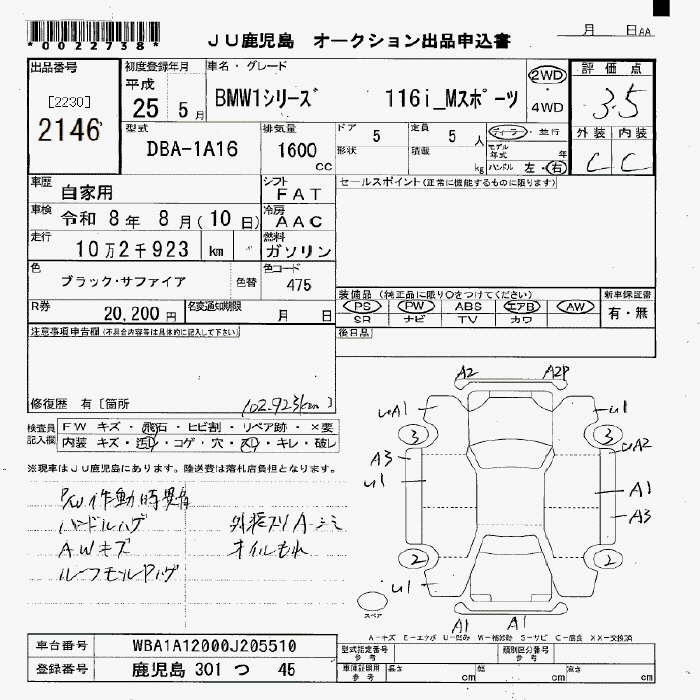 *0022738*
JU鹿児島 オークション出品申込書
月 日AA
出品番号
[2230]
2146
初度登録年月
平成
25 5月
車名・グレード
BMW1シリーズ 116i_Mスポーツ
2WD
・4WD
評価点
3.5
外装 内装
C C
型式
DBA-1A16
排気量
1600
cc
ドア 5
形状
定員 5 人
積載 kg
ディーラ・並行
モデル年式 年
ハンドル 左・右
車歴
自家用
シフト
FAT
セールスポイント(正常に機能するものに限ります)
車検
令和 8年 8月(10日)
冷房
AAC
走行
10万2千923 km
燃料
ガソリン
色
ブラック・サファイア
色替
色コード
475
R券
20,200円
名変通知期限
月 日
装備品(純正品に限り○をつけてください)
PS PW ABS エアB AW
SR ナビ TV カワ
新車保証書
有・無
注意事項申告欄(不具合内容等は具体的に記入して下さい)
後日品
修復歴 有〔箇所 102,923(km)〕
検査員記入欄
FW キズ・飛石・ヒビ割・リペア跡・×要
内装 キズ・汚レ・コゲ・穴・スレ・キレ・破レ
※現車はJU鹿児島にあります。陸送費は落札店負担となります。
P/W作動時異音
ハンドルハゲ 外装スリA シミ
AWキズ オイルもれ
ルーフモール
A2 A2P
uA1 u1
3 3
A3 uA2
u1 A1
A3
2 2
u1
スペア
A1 A1
A-キズ E-エクボ U-凹み W-補修跡 S-サビ C-腐食 XX-交換済
車台番号
WBA1A12000J205510
登録番号
鹿児島 301 つ 45
型式指定番号
参考
類別区分番号
参考
車検証用
参考
長さ cm
幅 cm
高さ cm